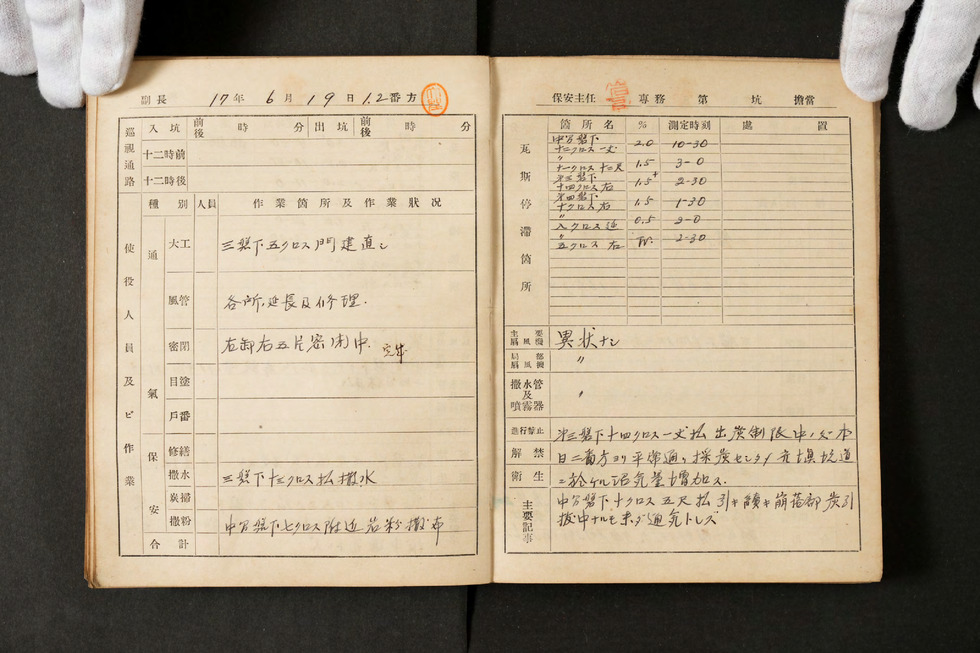 副長 17年 6月 19日 1.2番方
巡視通路 入坑 前後 時 分 出坑 前後 時 分
十二時前
十二時後
使役人員及ビ作業
種別 人員 作業箇所及作業狀況
通氣
大工 三盤下五クロス門建直シ
風管 各所延長及修理.
密閉 右卸右五片密閉中. 完成
目塗
戸番
保安
修繕
撒水 三盤下十三クロス払撒水
炭掃
撒粉 中分盤下七クロス附近岩粉撒布
合計
保安主任 專務 第 坑 擔當
瓦斯停滯箇所
箇所名 % 測定時刻 處置
中分盤下
十二クロス一丈 2.0 10-30
〃
十一クロス十二尺 1.5 3-0
第三盤下
十四クロス右 1.5+ 2-30
第四盤下
十クロス右 1.5 1-30
〃
八クロス延 0.5 2-0
〃
五クロス右 Tr. 2-30
主要扇風機 異狀ナシ
局部扇風機 〃
撒水管及噴霧器 〃
進行停止 第三盤下十四クロス一丈払出炭制限中ノ処本
解禁 日二番方ヨリ平常通リ採炭センタメ充塡坑道
衛生 ニ於ケル沼気量增加ス.
主要記事 中分盤下十クロス五尺払引キ
崩落部炭引
拔中ナルモ未ダ通気トレズ